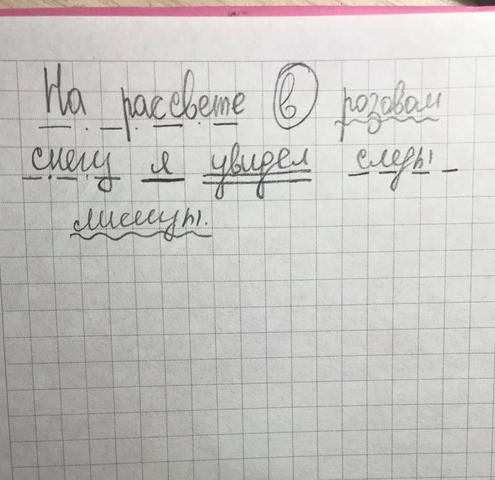 На рассвете в розовам
снегу я увидел следы
лисицы.